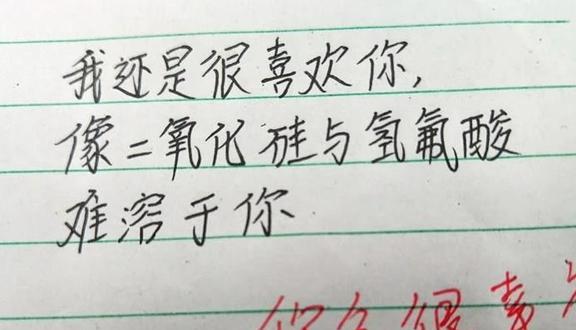 我还是很喜欢你,
像二氧化硅与氢氟酸
难溶于你